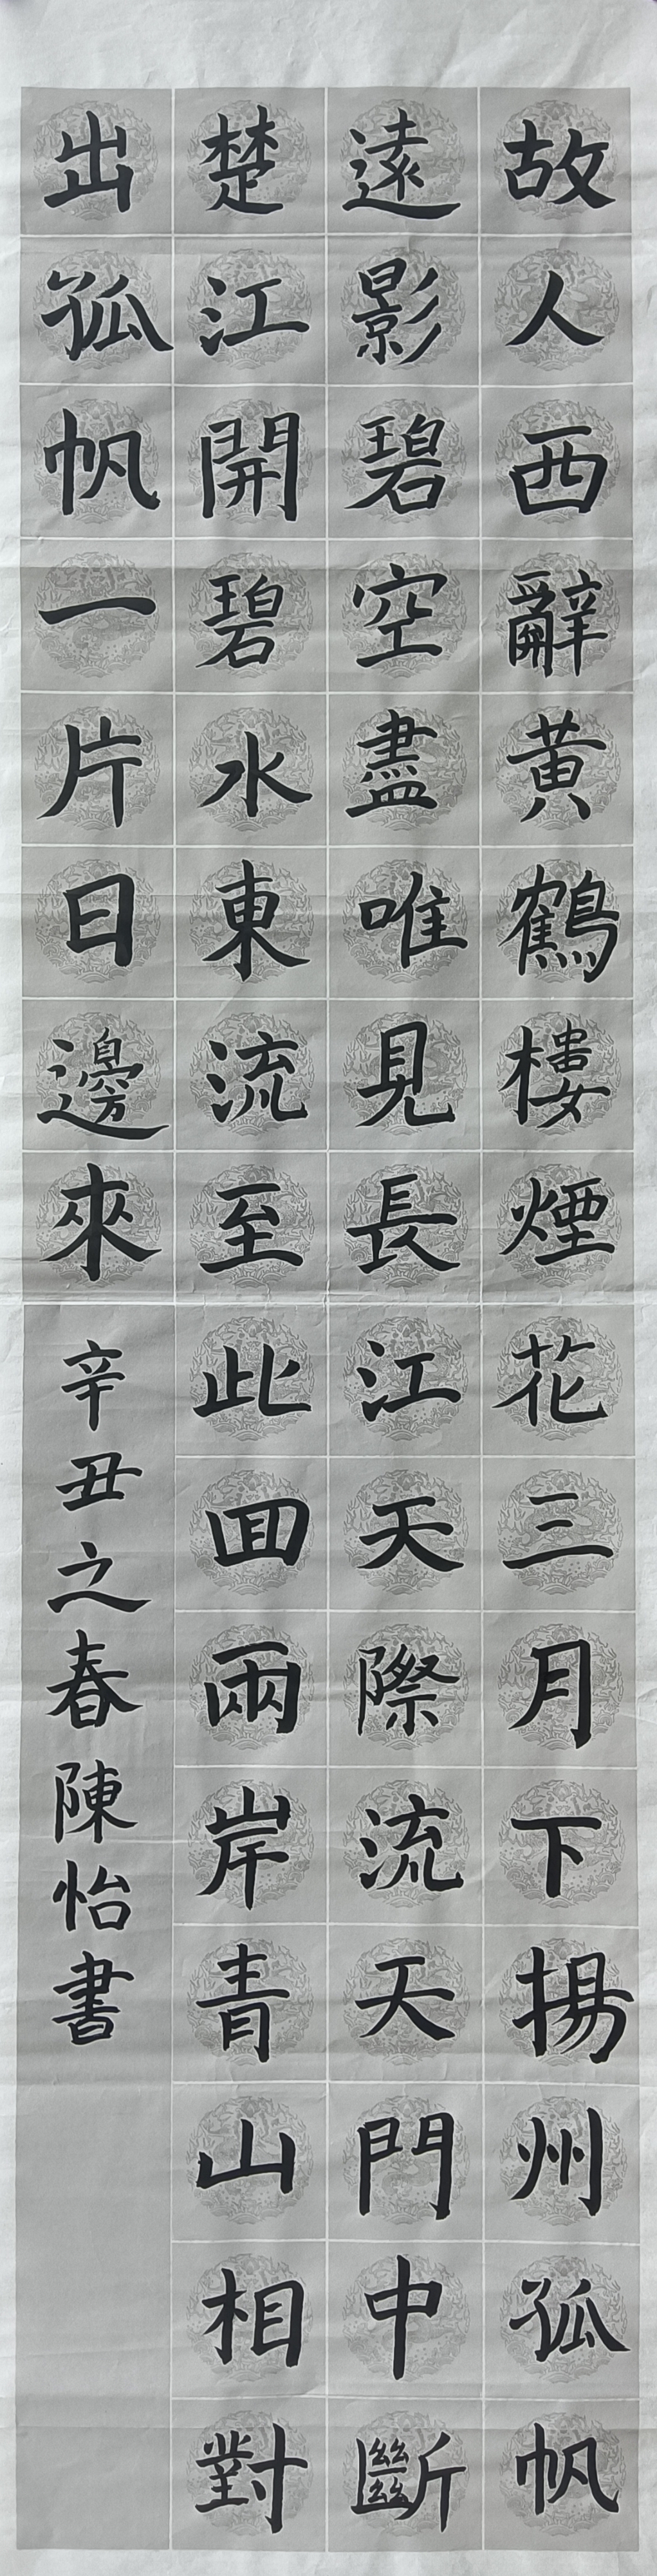 故人西辭黄鶴樓煙花三月下揚州孤帆
遠影碧空盡唯見長江天際流天門中斷
楚江開碧水東流至此回兩岸青山相對
出孤帆一片日邊來
辛丑之春陳怡書